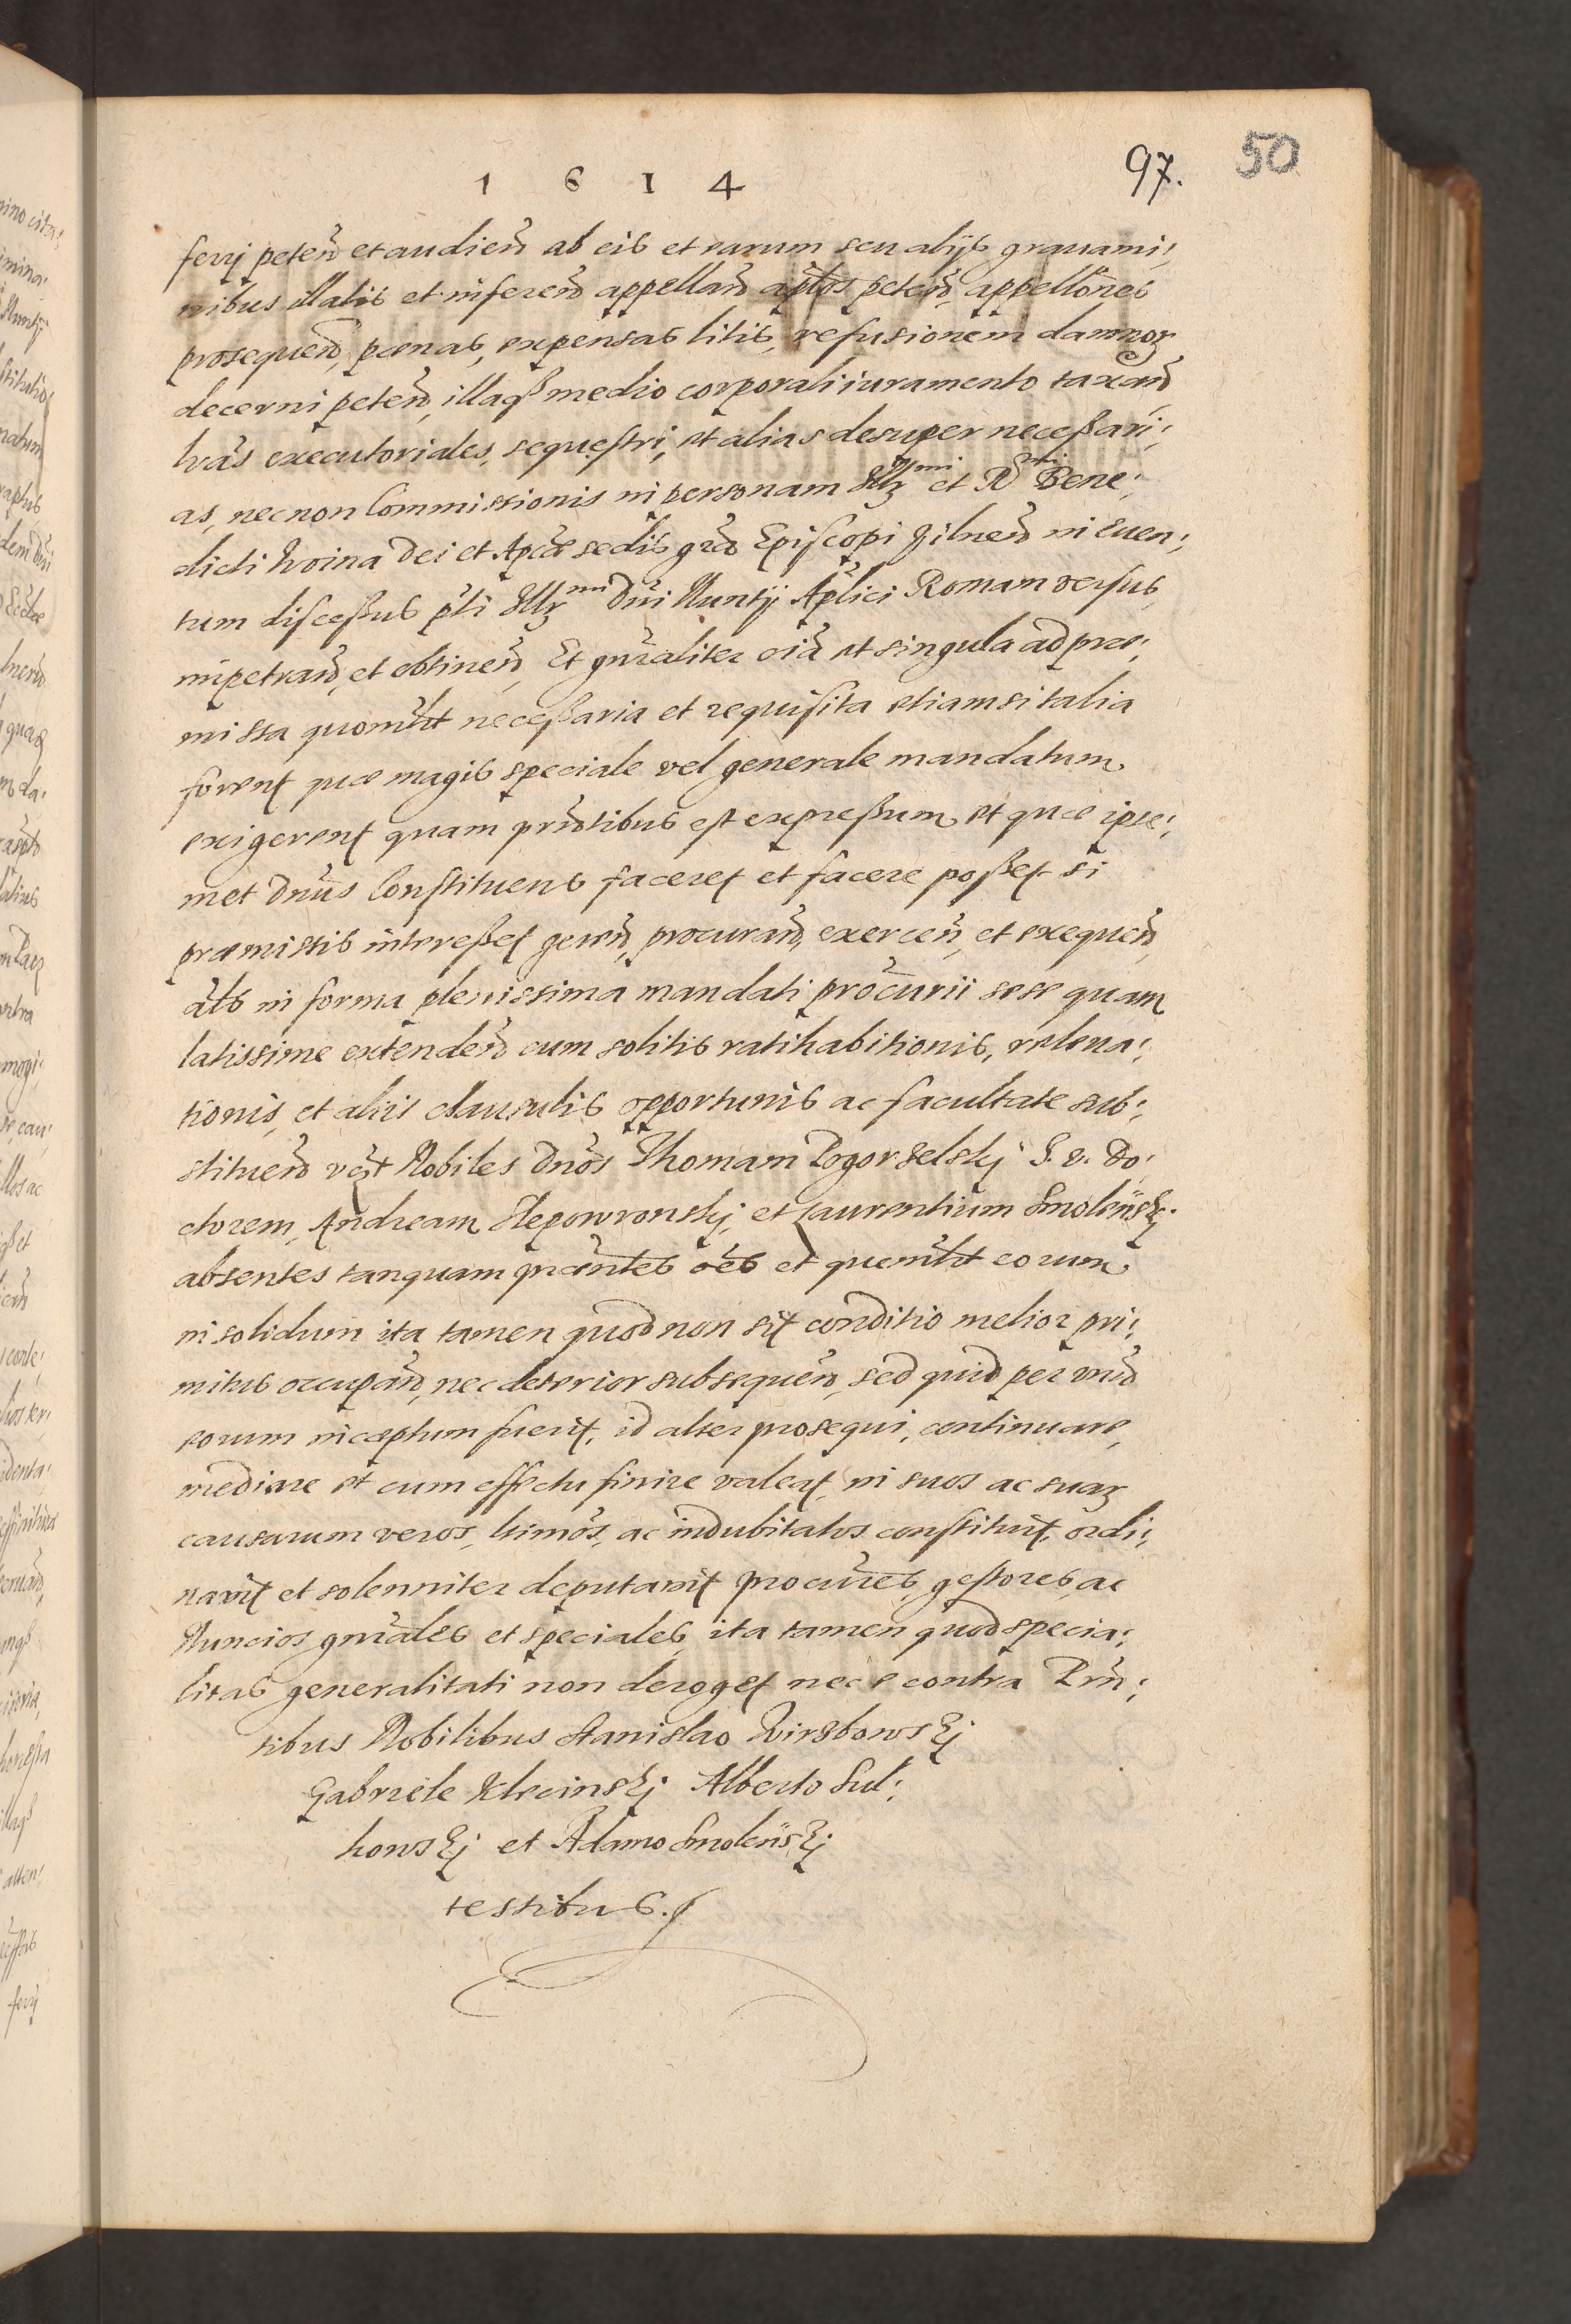 1 6 1 4
97. 50
ferrj peteñ et audieñ ab eis et earum seu alijs grauami:
nibus illatis et infereñ appellañ aplos peteñ, appellões
prosequeñ, pœnas, expensas litis, refusionem damnoꝝ
decerni peteñ, illasqꝫ medio corporali iuramento taxañ
lras executoriales, sequestri, et alias desuper necessari:
as, necnon Commissionis in personam Illꝫmi et Rdmi Bene:
dicti Woina Dei et Aplcæ sedis grã Episcopi Vilneñ in euen:
tum discessus pti Illꝫmi Dni Nuntij Aplici Romam versus,
impetrañ, et obtineñ, Et gnraliter oia et singula ad præ:
missa quomlt necessaria et requisita etiamsi talia
forent quæ magis speciale vel generale mandatum
exigerent quam prñtibus est expressum et quæ ipse:
met Dnus Constituens faceret et facere posset si
præmissis interesset gereñ, procurañ, exerceñ, et exequeñ,
als in forma plenissima mandati procurii sese quam
latissime extendeñ cum solitis ratihabitionis, releua:
tionis, et aliis clausulis opportunis ac facultate sub:
stitueñ Nobiles Dnos Thomam Pogorzelskj J. v. Do:
ctorem, Andream Slepowronskj, et Laurentium Smolenskj
absentes tanquam præntes oes et quemlt eorum
in solidum ita tamen quod non sit conditio melior pri:
mitus occupañ, nec deterior subsequeñ, sed quid per vnũ
eorum inceptum fuerit, id alter prosequi, continuare,
mediare et cum effectu finire valeat, in suos ac suaꝝ
causarum veros, ltimos, ac indubitatos constituit, ordi:
nauit et solenniter deputauit procures, gestores, ac
Nuncios gnrales et speciales, ita tamen quod specia:
litas generalitati non deroget nec e contra Prñ:
tibus Nobilibus Stanislao Wirzbowskj
Gabriele Klecinskj Alberto Sul:
howskj et Adamo Smolenskj
testibus.